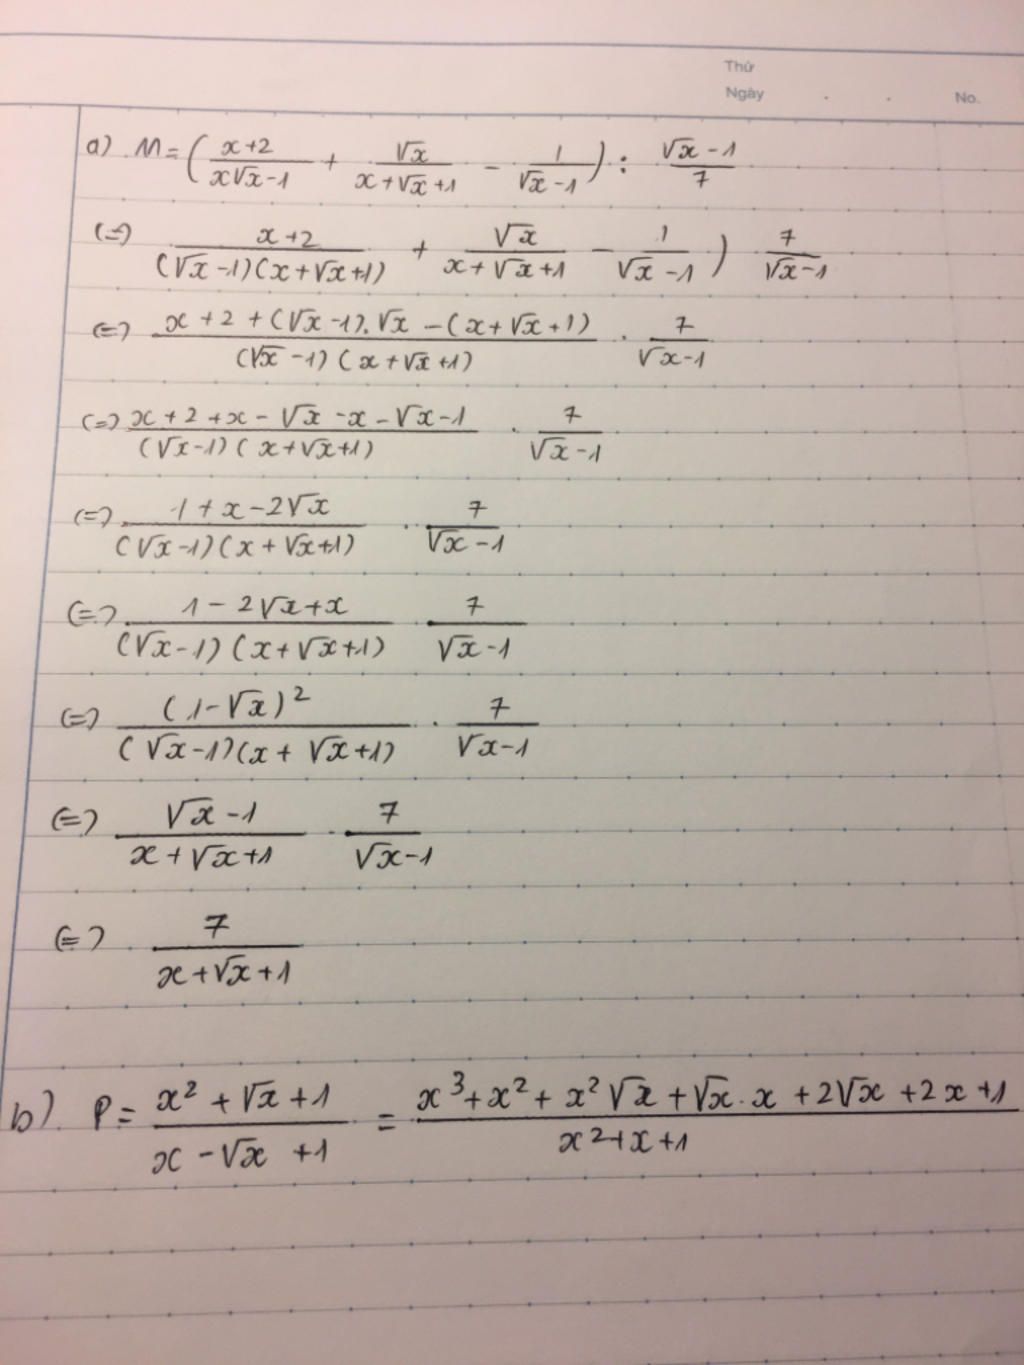 Thứ
Ngày . . No.
a) M = ( \frac{x+2}{x√x-1} + \frac{√x}{x+√x+1} - \frac{1}{√x-1} ) : \frac{√x-1}{7}
(=) \frac{x+2}{(√x-1)(x+√x+1)} + \frac{√x}{x+√x+1} - \frac{1}{√x-1} ) \frac{7}{√x-1}
(=) \frac{x+2+(√x-1).√x-(x+√x+1)}{(√x-1)(x+√x+1)} . \frac{7}{√x-1}
(=) \frac{x+2+x-√x-x-√x-1}{(√x-1)(x+√x+1)} . \frac{7}{√x-1}
(=) \frac{1+x-2√x}{(√x-1)(x+√x+1)} . \frac{7}{√x-1}
(=) \frac{1-2√x+x}{(√x-1)(x+√x+1)} \frac{7}{√x-1}
(=) \frac{(1-√x)^2}{(√x-1)(x+√x+1)} . \frac{7}{√x-1}
(=) \frac{√x-1}{x+√x+1} . \frac{7}{√x-1}
(=) \frac{7}{x+√x+1}
b). P = \frac{x^2+√x+1}{x-√x+1} = \frac{x^3+x^2+x^2√x+√x.x+2√x+2x+1}{x^2+x+1}